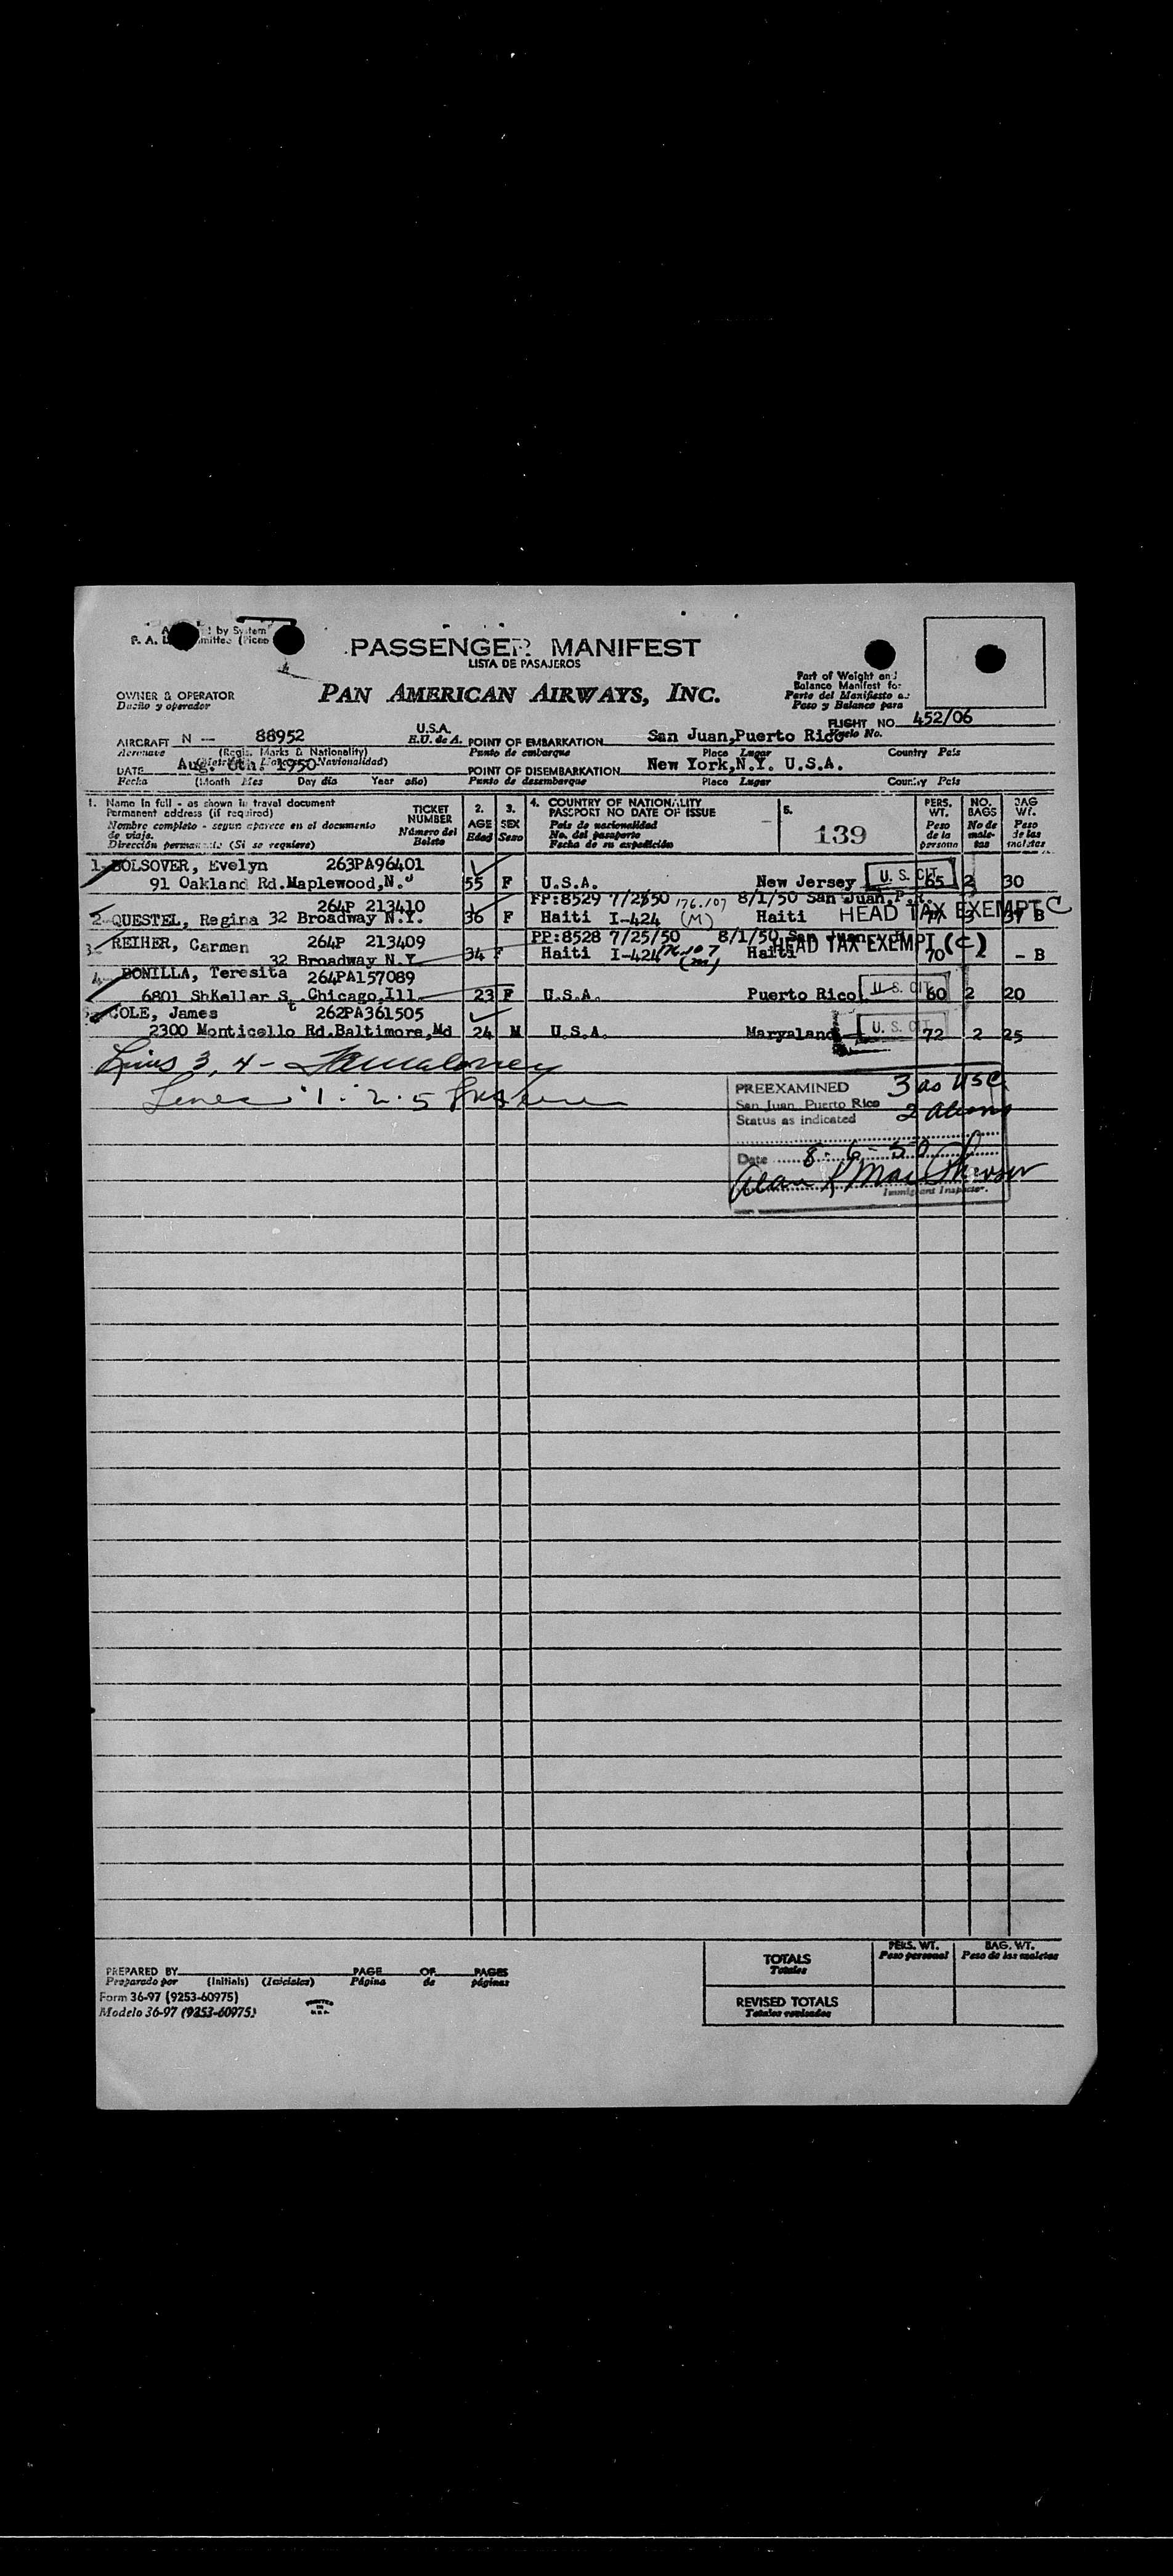 PASSENGER MANIFEST
LISTA DE PASAJEROS
PAN AMERICAN AIRWAYS, INC.
Part of Weight and
Balance Manifest for
Parte del Manifiesto de
Peso y Balance para
OWNER & OPERATOR
Dueño y operador
FLIGHT NO. 452/06
Vuelo No.
AIRCRAFT N — 88952 U.S.A.
Aeronave (Regis. Marks & Nationality) E.U. de A.
POINT OF EMBARKATION San Juan,Puerto Rico
Punto de embarque Place Lugar Country País
DATE Aug. 6th. 1950
Fecha (Month Mes Day día Year año)
POINT OF DISEMBARKATION New York,N.Y. U.S.A.
Punto de desembarque Place Lugar Country País
1. Name in full - as shown in travel document
Permanent address (if required)
Nombre completo - segun aparece en el documento
de viaje.
Dirección permanente (Si se requiere)
TICKET
NUMBER
Número del
Boleto
2.
AGE
Edad
3.
SEX
Sexo
4. COUNTRY OF NATIONALITY
PASSPORT NO DATE OF ISSUE
País de nacionalidad
No. del pasaporte
Fecha de su expedición
5.
139
PERS.
WT.
Peso
de la
persona
NO.
BAGS
No de
male-
tas
BAG
WT.
Peso
de las
maletas
1. BOLSOVER, Evelyn 263PA96401
91 Oakland Rd.Maplewood,N.J 55 F U.S.A. New Jersey U. S. CIT 65 2 30
264P 213410 PP:8529 7/25/50 176.107 8/1/50 San Juan,P.R.
2. QUESTEL, Regina 32 Broadway N.Y. 36 F Haiti I-424 (M) Haiti HEAD TAX EXEMPT C 3 37 B
3. REIHER, Carmen 264P 213409 PP:8528 7/25/50 8/1/50 San Juan HEAD TAX EXEMPT (C)
32 Broadway N.Y. 34 F Haiti I-424 176.107 (M) Haiti 70 - B
4. BONILLA, Teresita 264PA157089
6801 ShKeller St. Chicago,Ill. 23 F U.S.A. Puerto Rico U. S. CIT 60 2 20
5. COLE, James 262PA361505
2300 Monticello Rd.Baltimore,Md 24 M U.S.A. Maryaland U. S. CIT 72 2 25
Lines 3, 4 -
Lines 1. 2. 5
PREEXAMINED 3 as USC
San Juan, Puerto Rico 2 Aliens
Status as indicated
Date 8-6-50
Alan MacPherson
Immigrant Inspector.
PREPARED BY PAGE OF PAGES
Preparado por (Initials) (Iniciales) Página de páginas
Form 36-97 (9253-60975)
Modelo 36-97 (9253-60975)
PRINTED
IN
U.S.A.
PERS. WT.
Peso personal
BAG. WT.
Peso de las maletas
TOTALS
Totales
REVISED TOTALS
Totales revisados